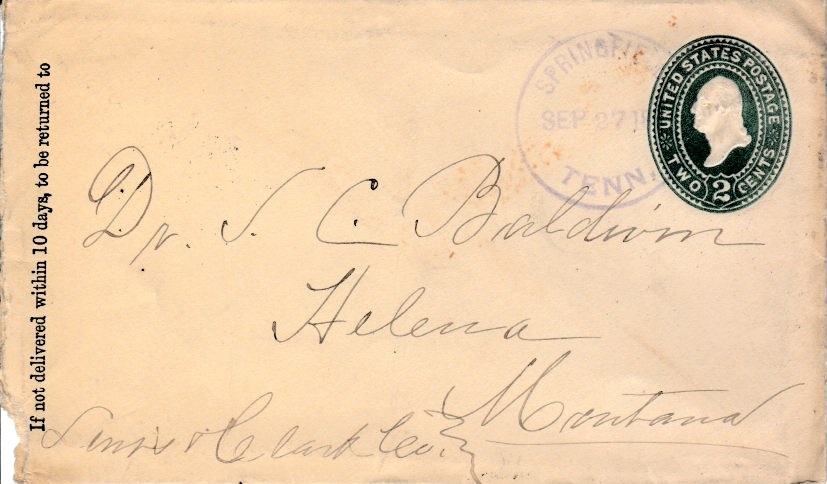 If not delivered within 10 days, to be returned to
SPRINGFIE
SEP 27 1
TENN.
UNITED STATES POSTAGE
TWO 2 CENTS
Dr. S. C. Baldwin
Helena
Montana
Lewis & Clark Co.